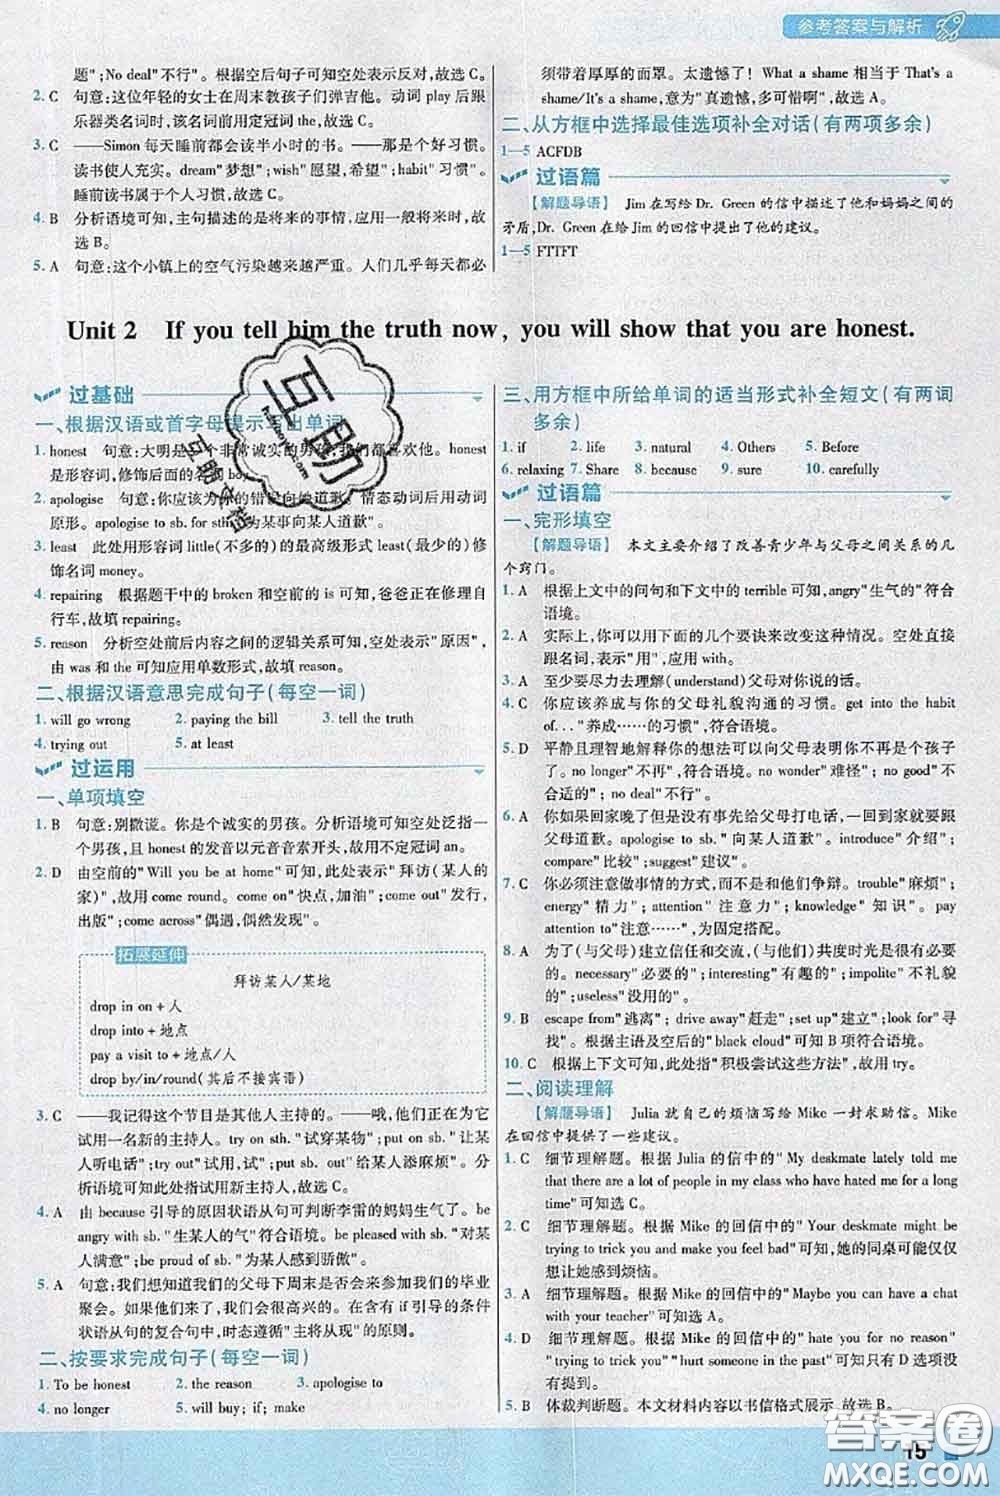 参考答案与解析
题";No deal"不行"。根据空后句子可知空处表示反对,故选C。
2. C 句意:这位年轻的女士在周末教孩子们弹吉他。动词 play后跟
乐器类名词时,该名词前用定冠词 the,故选C。
3. C ——Simon每天睡前都会读半小时的书。——那是个好习惯。
读书使人充实。dream"梦想";wish"愿望,希望";habit"习惯"。
睡前读书属于个人习惯,故选C。
4. B 分析语境可知,主句描述的是将来的事情,应用一般将来时,故
选B。
5. A 句意:这个小镇上的空气污染越来越严重。人们几乎每天都必
须带着厚厚的面罩。太遗憾了! What a shame 相当于 That's a
shame/It's a shame,意为"真遗憾,多可惜啊",故选A。
二、从方框中选择最佳选项补全对话(有两项多余)
1—5 ACFDB
过语篇
【解题导语】 Jim在写给Dr. Green的信中描述了他和妈妈之间的
矛盾,Dr. Green在给Jim的回信中提出了他的建议。
1—5 FTTFT
Unit 2 If you tell him the truth now, you will show that you are honest.
过基础
一、根据汉语或首字母提示写出单词
1. honest 句意:大明是一个非常诚实的男孩,我们都喜欢他。honest
是形容词,修饰后面的名词boy。
2. apologise 句意:你应该为你的错误向她道歉。情态动词后用动词
原形。apologise to sb. for sth."为某事向某人道歉"。
3. least 此处用形容词 little(不多的)的最高级形式 least(最少的)修
饰名词 money。
4. repairing 根据题干中的 broken 和空前的 is 可知,爸爸正在修理自
行车,故填 repairing。
5. reason 分析空处前后内容之间的逻辑关系可知,空处表示"原因",
由 was 和 the 可知应用单数形式,故填 reason。
二、根据汉语意思完成句子(每空一词)
1. will go wrong 2. paying the bill 3. tell the truth
4. trying out 5. at least
过运用
一、单项填空
1. B 句意:别撒谎。你是个诚实的男孩。分析语境可知空处泛指一
个男孩,且 honest 的发音以元音音素开头,故用不定冠词 an。
2. D 由空前的"Will you be at home"可知,此处表示"拜访(某人的
家)",故用 come round。come on"快点,加油";come out"发行,
出版";come across"偶遇,偶然发现"。
拓展延伸
拜访某人/某地
drop in on + 人
drop into + 地点
pay a visit to + 地点/人
drop by/in/round(其后不接宾语)
3. C ——我记得这个节目是其他人主持的。——哦,他们正在为它
试用一名新的主持人。try on sth."试穿某物";put on sb."让某
人听电话";try out"试用,试";put sb. out"给某人添麻烦"。分
析语境可知此处指试用新主持人,故选C。
4. A 由 because 引导的原因状语从句可判断李雷的妈妈生气了。be
angry with sb."生某人的气"符合语境。be pleased with sb."对
某人满意";be proud of sb."为某人感到骄傲"。
5. A 句意:我们想知道我们的父母下周末是否会来参加我们的毕业
聚会。如果他们来了,我们会很高兴的。在含有 if 引导的条件
状语从句的复合句中,时态遵循"主将从现"的原则。
二、按要求完成句子(每空一词)
1. To be honest 2. the reason 3. apologise to
4. no longer 5. will buy; if; make
三、用方框中所给单词的适当形式补全短文(有两词
多余)
1. if 2. life 3. natural 4. Others 5. Before
6. relaxing 7. Share 8. because 9. sure 10. carefully
过语篇
一、完形填空
【解题导语】 本文主要介绍了改善青少年与父母之间关系的几
个窍门。
1. A 根据上文中的问句和下文中的 terrible 可知,angry"生气的"符合
语境。
2. A 实际上,你可以用下面的几个要诀来改变这种情况。空处直接
跟名词,表示"用",应用 with。
3. A 至少要尽力去理解(understand)父母对你说的话。
4. C 你应该养成与你的父母礼貌沟通的习惯。get into the habit
of..."养成……的习惯",符合语境。
5. D 平静且理智地解释你的想法可以向父母表明你不再是个孩子
了。no longer"不再",符合语境。no wonder"难怪"; no good"不
合适的"; no deal"不行"。
6. A 你如果回家晚了但是没有事先给父母打电话,一到家就要跟
父母道歉。apologise to sb."向某人道歉"。introduce"介绍";
compare"比较";suggest"建议"。
7. C 你必须注意做事情的方式,而不是和他们争辩。trouble"麻烦";
energy"精力"; attention"注意力"; knowledge"知识"。pay
attention to"注意……",为固定搭配。
8. A 为了(与父母)建立信任和交流,(与他们)共度时光是很有必要
的。necessary"必要的"; interesting"有趣的"; impolite"不礼貌
的";useless"没用的"。
9. B escape from"逃离"; drive away"赶走";set up"建立";look for"寻
找"。根据主语及空后的"black cloud"可知B项符合语境。
10. C 根据上下文可知,此处指"积极尝试这些方法",故用 try。
二、阅读理解
【解题导语】 Julia 就自己的烦恼写给 Mike 一封求助信。Mike
在回信中提供了一些建议。
1. C 细节理解题。根据 Julia 的信中的"My deskmate lately told me
that there are a lot of people in my class who have hated me for a long
time"可知选C。
2. C 细节理解题。根据 Mike 的回信中的"Your deskmate might be
trying to trick you and make you feel bad"可知,她的同桌可能仅仅
想让她感到烦恼。
3. A 细节理解题。根据 Mike 的回信中的"Maybe you can have a chat
with your teacher"可知选A。
4. D 细节理解题。根据 Mike 的回信中的"hate you for no reason"
"trying to trick you""hurt someone in the past"可知只有D选项没
有提到。
5. B 体裁判断题。本文材料内容以书信格式展示,故选B。
15
答案圈
MXQE.COM
互助
互助文档